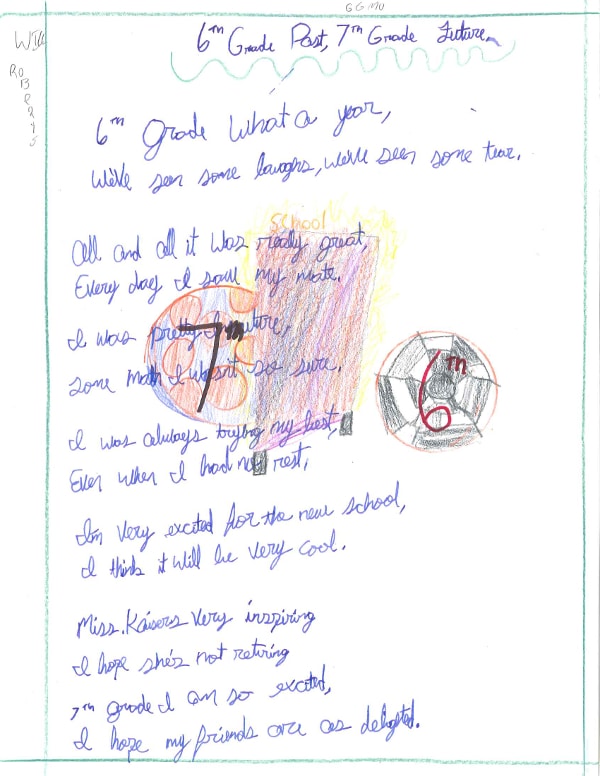 GGMU
Will
Roberts
6th Grade Past, 7th Grade Future
6th Grade What a year,
We've seen some laughs, we've seen some tear.
School
All and all it was really great,
Every day I saw my mate.
I was pretty
some math I wasn't so sure.
7th
6th
I was always trying my best,
Even when I had no rest,
I'm very excited for the new school,
I think it will be very cool.
Miss.Kaisers very inspiring
I hope she's not retiring
7th grade I am so excited,
I hope my friends are as delighted.